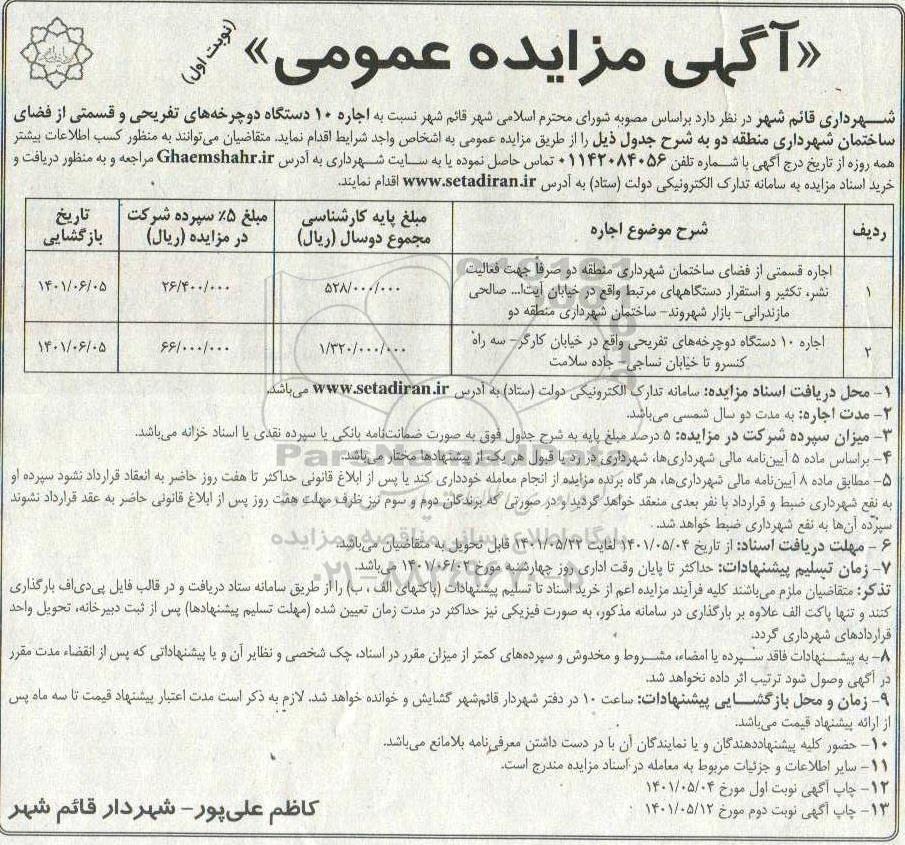 «آگهی مزایده عمومی»
(نوبت اول)
شهرداری قائم شهر در نظر دارد براساس مصوبه شورای محترم اسلامی شهر قائم شهر نسبت به اجاره ۱۰ دستگاه دوچرخه‌های تفریحی و قسمتی از فضای
ساختمان شهرداری منطقه دو به شرح جدول ذیل را از طریق مزایده عمومی به اشخاص واجد شرایط اقدام نماید. متقاضیان می‌توانند به منظور کسب اطلاعات بیشتر
همه روزه از تاریخ درج آگهی با شماره تلفن ۰۱۱۴۲۰۸۴۰۵۶ تماس حاصل نموده یا به سایت شهرداری به آدرس Ghaemshahr.ir مراجعه و به منظور دریافت و
خرید اسناد مزایده به سامانه تدارک الکترونیکی دولت (ستاد) به آدرس www.setadiran.ir اقدام نمایند.
ردیف	شرح موضوع اجاره	مبلغ پایه کارشناسی مجموع دوسال (ریال)	مبلغ ۵٪ سپرده شرکت در مزایده (ریال)	تاریخ بازگشایی
۱	اجاره قسمتی از فضای ساختمان شهرداری منطقه دو صرفاً جهت فعالیت
نشر، تکثیر و استقرار دستگاههای مرتبط واقع در خیابان آیت‌ا... صالحی
مازندرانی- بازار شهروند- ساختمان شهرداری منطقه دو	۵۲۸/۰۰۰/۰۰۰	۲۶/۴۰۰/۰۰۰	۱۴۰۱/۰۶/۰۵
۲	اجاره ۱۰ دستگاه دوچرخه‌های تفریحی واقع در خیابان کارگر- سه راه
کنسرو تا خیابان نساجی- جاده سلامت	۱/۳۲۰/۰۰۰/۰۰۰	۶۶/۰۰۰/۰۰۰	۱۴۰۱/۰۶/۰۵
۱- محل دریافت اسناد مزایده: سامانه تدارک الکترونیکی دولت (ستاد) به آدرس www.setadiran.ir می‌باشد.
۲- مدت اجاره: به مدت دو سال شمسی می‌باشد.
۳- میزان سپرده شرکت در مزایده: ۵ درصد مبلغ پایه به شرح جدول فوق به صورت ضمانت‌نامه بانکی یا سپرده نقدی یا اسناد خزانه می‌باشد.
۴- براساس ماده ۵ آیین‌نامه مالی شهرداری‌ها، شهرداری در رد یا قبول هر یک از پیشنهادها مختار می‌باشد.
۵- مطابق ماده ۸ آیین‌نامه مالی شهرداری‌ها، هرگاه برنده مزایده از انجام معامله خودداری کند یا پس از ابلاغ قانونی حداکثر تا هفت روز حاضر به انعقاد قرارداد نشود سپرده او
به نفع شهرداری ضبط و قرارداد با نفر بعدی منعقد خواهد گردید و در صورتی که برندگان دوم و سوم نیز ظرف مهلت هفت روز پس از ابلاغ قانونی حاضر به عقد قرارداد نشوند
سپرده آن‌ها به نفع شهرداری ضبط خواهد شد.
۶- مهلت دریافت اسناد: از تاریخ ۱۴۰۱/۰۵/۰۴ لغایت ۱۴۰۱/۰۵/۲۲ قابل تحویل به متقاضیان می‌باشد.
۷- زمان تسلیم پیشنهادات: حداکثر تا پایان وقت اداری روز چهارشنبه مورخ ۱۴۰۱/۰۶/۰۲ می‌باشد.
تذکر: متقاضیان ملزم می‌باشند کلیه فرآیند مزایده اعم از خرید اسناد تا تسلیم پیشنهادات (پاکتهای الف ، ب) را از طریق سامانه ستاد دریافت و در قالب فایل پی‌دی‌اف بارگذاری
کنند و تنها پاکت الف علاوه بر بارگذاری در سامانه مذکور، به صورت فیزیکی نیز حداکثر در مدت زمان تعیین شده (مهلت تسلیم پیشنهادها) پس از ثبت دبیرخانه، تحویل واحد
قراردادهای شهرداری گردد.
۸- به پیشنهادات فاقد سپرده یا امضاء، مشروط و مخدوش و سپرده‌های کمتر از میزان مقرر در اسناد، چک شخصی و نظایر آن و یا پیشنهاداتی که پس از انقضاء مدت مقرر
در آگهی وصول شود ترتیب اثر داده نخواهد شد.
۹- زمان و محل بازگشایی پیشنهادات: ساعت ۱۰ در دفتر شهردار قائم‌شهر گشایش و خوانده خواهد شد. لازم به ذکر است مدت اعتبار پیشنهاد قیمت تا سه ماه پس
از ارائه پیشنهاد قیمت می‌باشد.
۱۰- حضور کلیه پیشنهاددهندگان و یا نمایندگان آن با در دست داشتن معرفی‌نامه بلامانع می‌باشد.
۱۱- سایر اطلاعات و جزئیات مربوط به معامله در اسناد مزایده مندرج است.
۱۲- چاپ آگهی نوبت اول مورخ ۱۴۰۱/۰۵/۰۴
۱۳- چاپ آگهی نوبت دوم مورخ ۱۴۰۱/۰۵/۱۲
کاظم علی‌پور- شهردار قائم شهر
ParsNamadData
پایگاه اطلاع رسانی مناقصه و مزایده